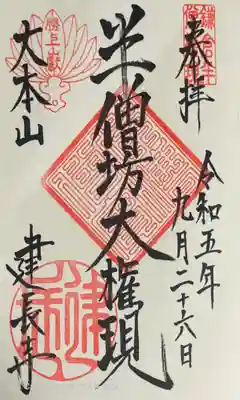 奉拝
令和五年
九月二十六日
半僧坊大権現
勝上嶽
大本山
建長寺